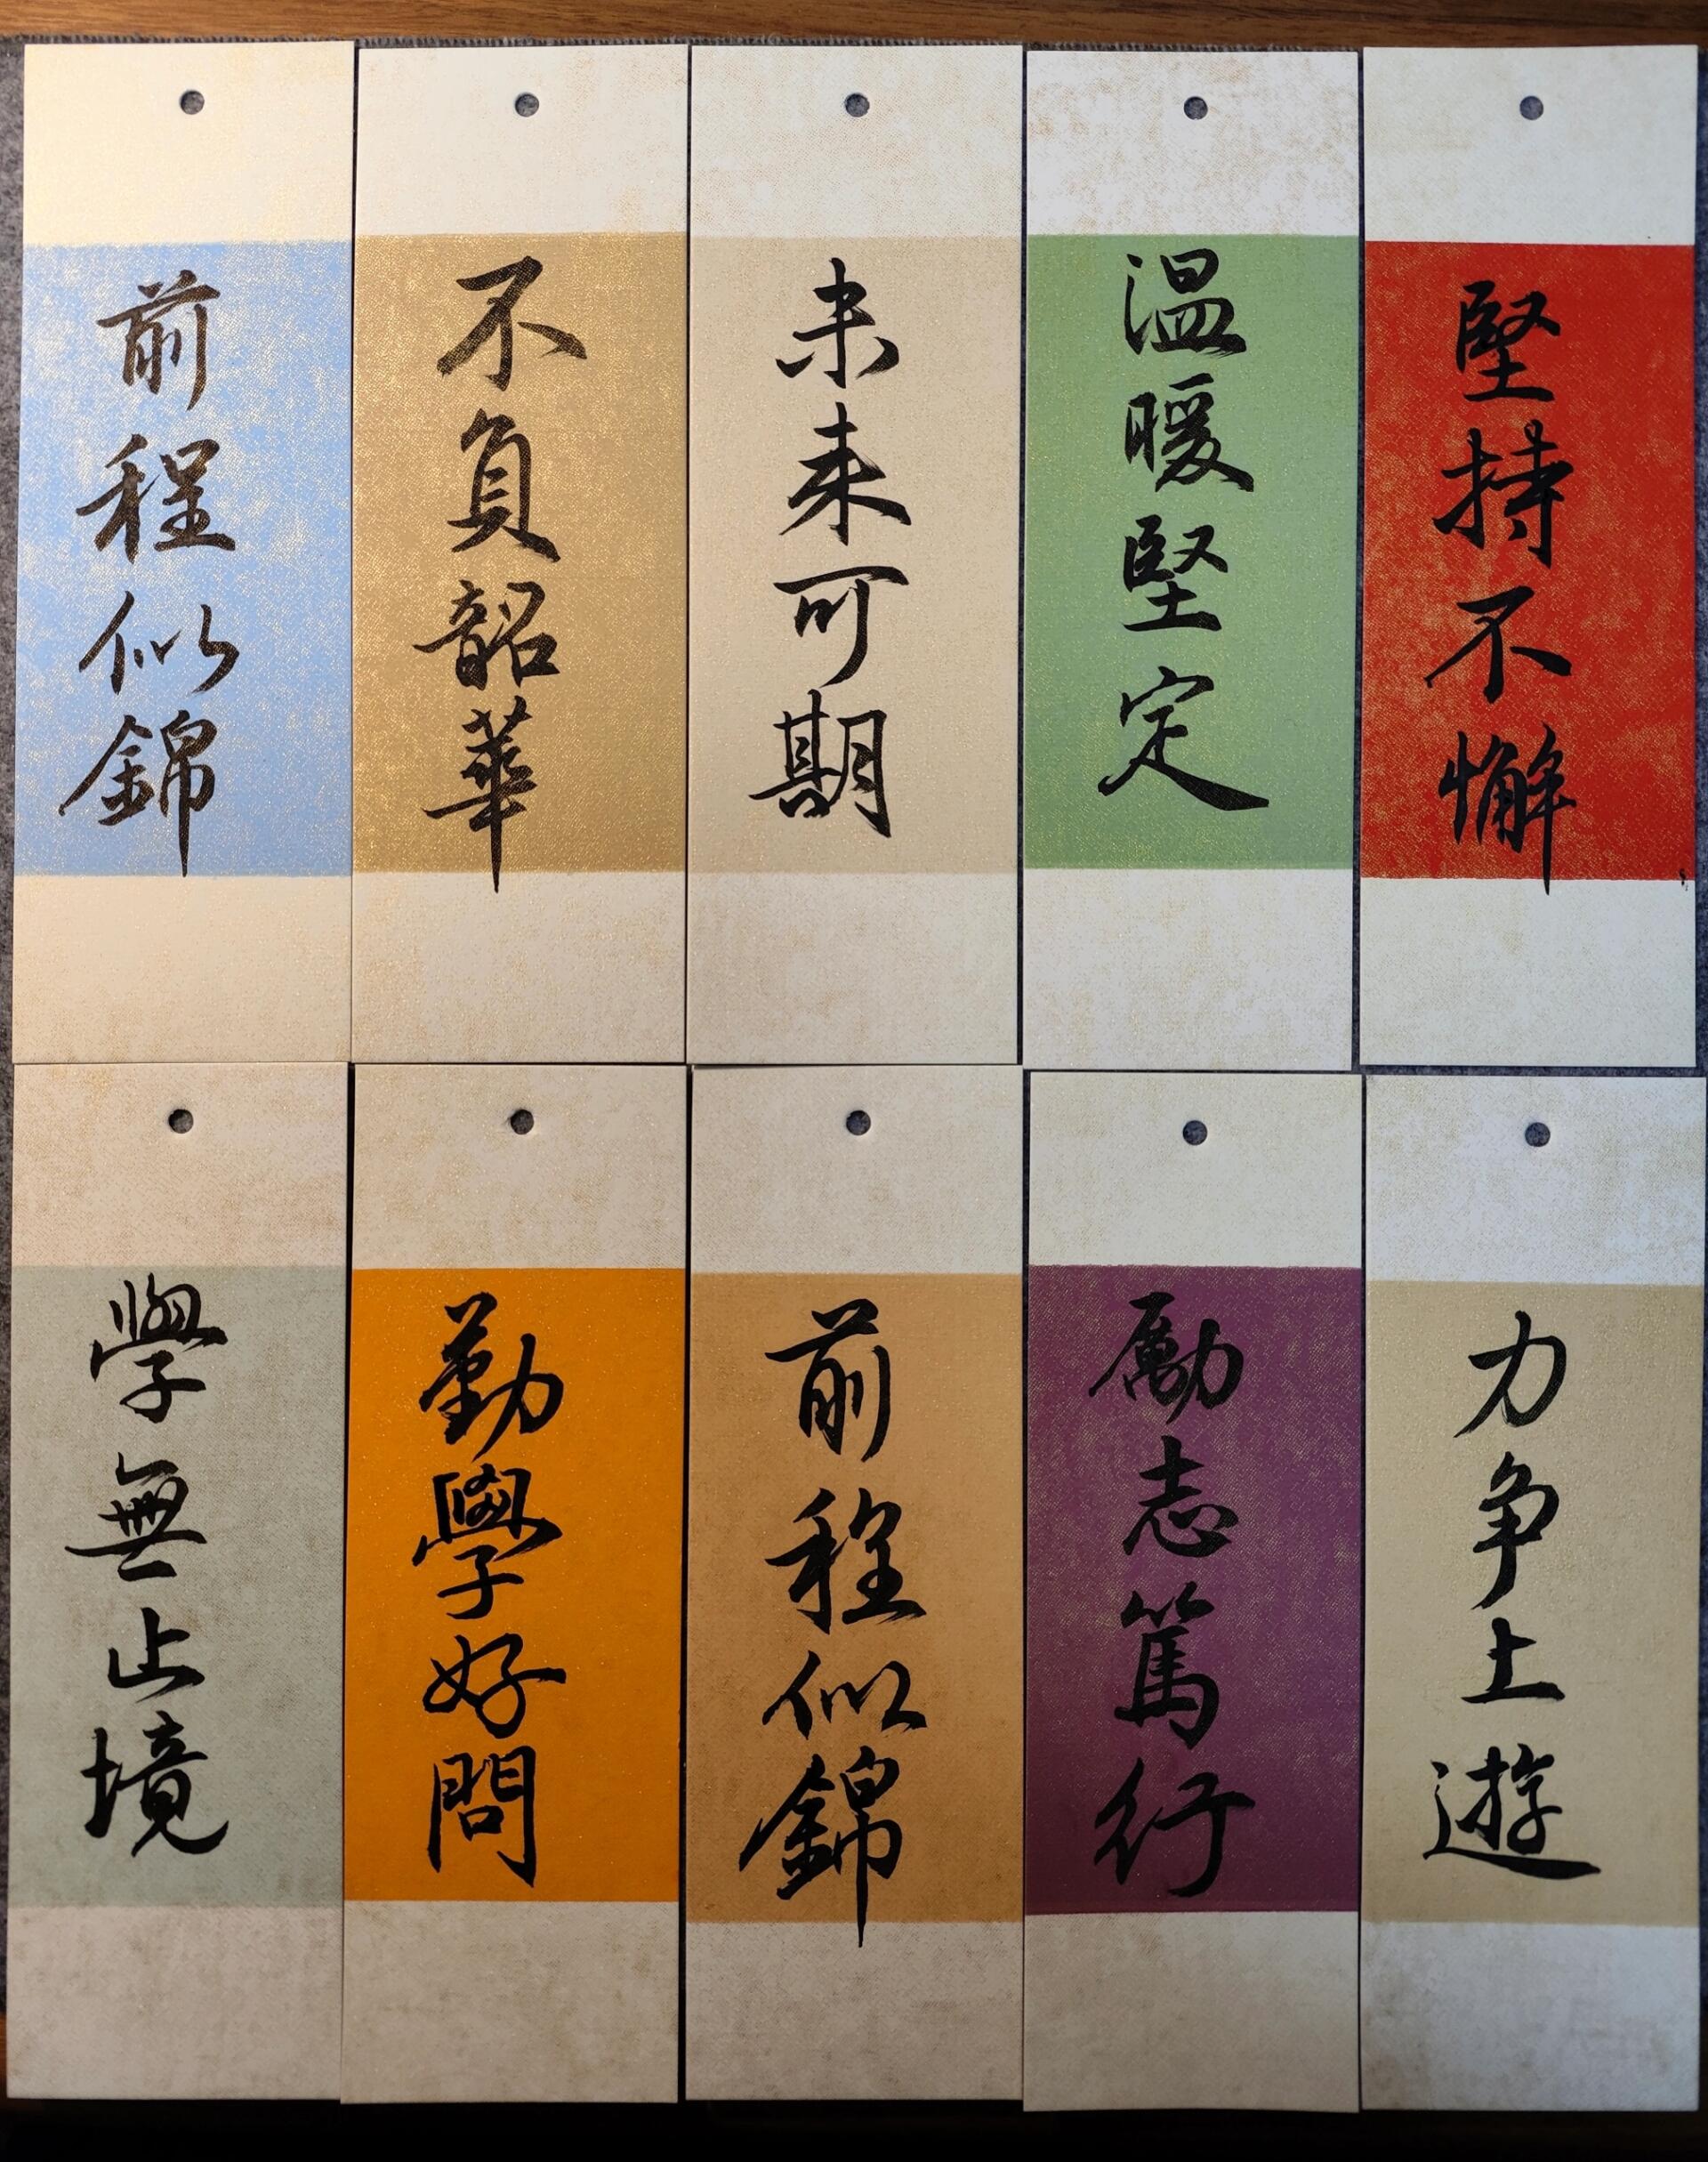 前程似錦
不負韶華
未來可期
温暖堅定
堅持不懈
學無止境
勤學好問
前程似錦
勵志篤行
力争上遊